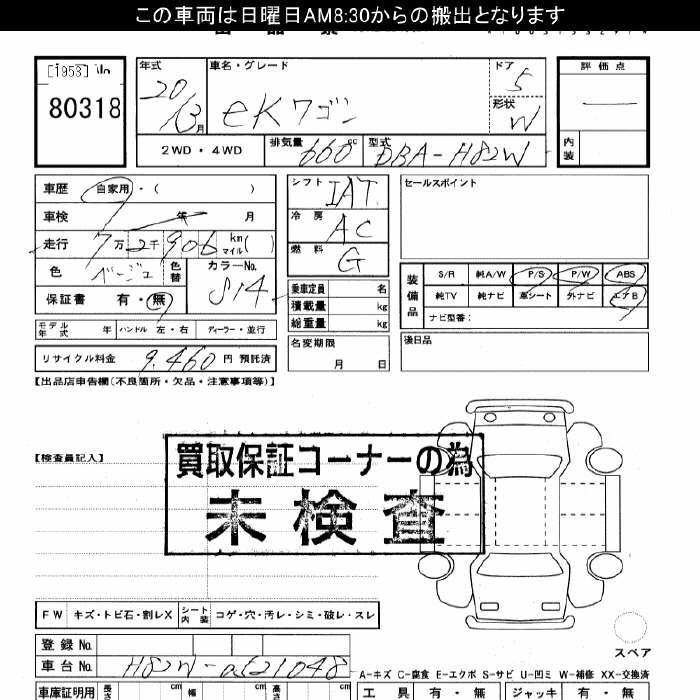 この車両は日曜日AM8:30からの搬出となります
[1953] No
80318
年式 車名・グレード ドア 評価点
20/3月 eKワゴン 5
形状 W
2WD・4WD 排気量 660cc 型式 DBA-H82W 内装
車歴 自家用・( )
シフト IAT
セールスポイント
車検 年 月
冷房 AC
走行 7万2千906km マイル( )
燃料 G
色 ベージュ 色替 カラーNo. S14
保証書 有・無
乗車定員 名
積載量 kg
総重量 kg
装備品 S/R 純A/W P/S P/W ABS
純TV 純ナビ 革シート 外ナビ エアB
ナビ型番:
モデル年式 年 ハンドル 左・右 ディーラー・並行
名変期限 月 日
後日品
リサイクル料金 9,460円 預託済
【出品店申告欄(不良箇所・欠品・注意事項等)】
【検査員記入】
買取保証コーナーの為
未検査
FW キズ・トビ石・割レX シート内装 コゲ・穴・汚レ・シミ・破レ・スレ
スペア
登録No.
車台No. H82W-0621048
A-キズ C-腐食 E-エクボ S-サビ U-凹ミ W-補修 XX-交換済
車庫証明用 長さ cm 幅 cm cm
工具 有・無 ジャッキ 有・無